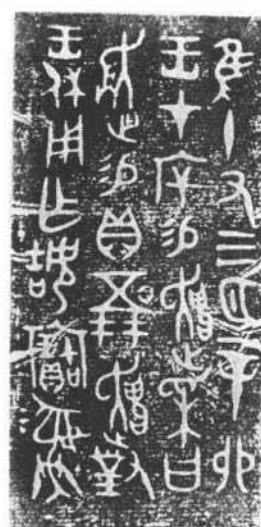 隹十又三月辛卯
王才厈易趞采曰
𧻚易貝五朋趞對
王休用乍姞寶彝